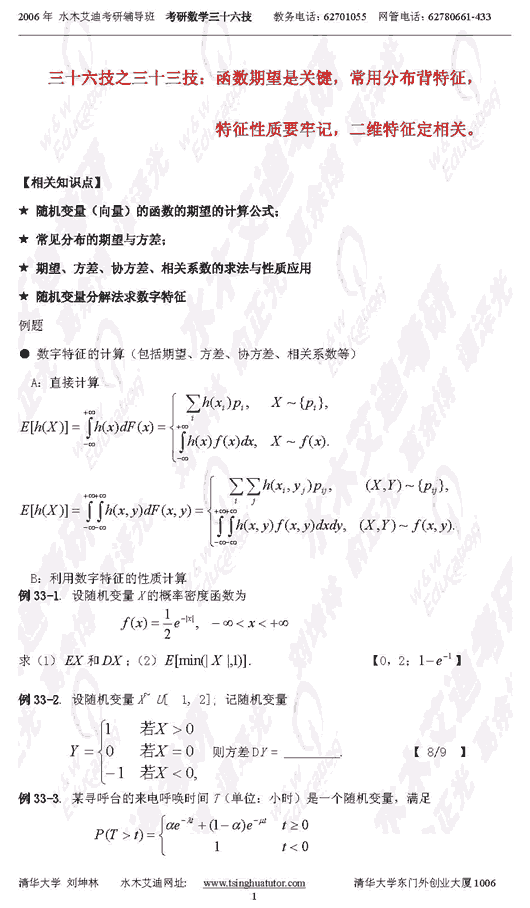 2006 年 水木艾迪考研辅导班 考研数学三十六技 教务电话:62701055 网管电话:62780661-433
三十六技之三十三技:函数期望是关键,常用分布背特征,
特征性质要牢记,二维特征定相关。
【相关知识点】
★ 随机变量(向量)的函数的期望的计算公式;
★ 常见分布的期望与方差;
★ 期望、方差、协方差、相关系数的求法与性质应用
★ 随机变量分解法求数字特征
例题
● 数字特征的计算(包括期望、方差、协方差、相关系数等)
A:直接计算
E[h(X)] = ∫_{-∞}^{+∞} h(x)dF(x) = { ∑_i h(x_i)p_i, X ~ {p_i},
∫_{-∞}^{+∞} h(x)f(x)dx, X ~ f(x).
E[h(X)] = ∫_{-∞}^{+∞}∫_{-∞}^{+∞} h(x,y)dF(x,y) = { ∑_i ∑_j h(x_i,y_j)p_{ij}, (X,Y) ~ {p_{ij}},
∫_{-∞}^{+∞}∫_{-∞}^{+∞} h(x,y)f(x,y)dxdy, (X,Y) ~ f(x,y).
B:利用数字特征的性质计算
例 33-1. 设随机变量 X 的概率密度函数为
f(x) = 1/2 e^{-|x|}, -∞ < x < +∞
求(1) EX 和 DX ;(2) E[min(| X |,1)] . 【0,2;1-e^{-1}】
例 33-2. 设随机变量 X~ U[ 1, 2]; 记随机变量
Y = { 1 若X > 0
0 若X = 0 则方差 DY = ________. 【 8/9 】
-1 若X < 0,
例 33-3. 某寻呼台的来电呼唤时间 T(单位:小时)是一个随机变量,满足
P(T > t) = { αe^{-λt} + (1-α)e^{-μt} t ≥ 0
1 t < 0
清华大学 刘坤林 水木艾迪网址: www.tsinghuatutor.com 清华大学东门外创业大厦 1006
1